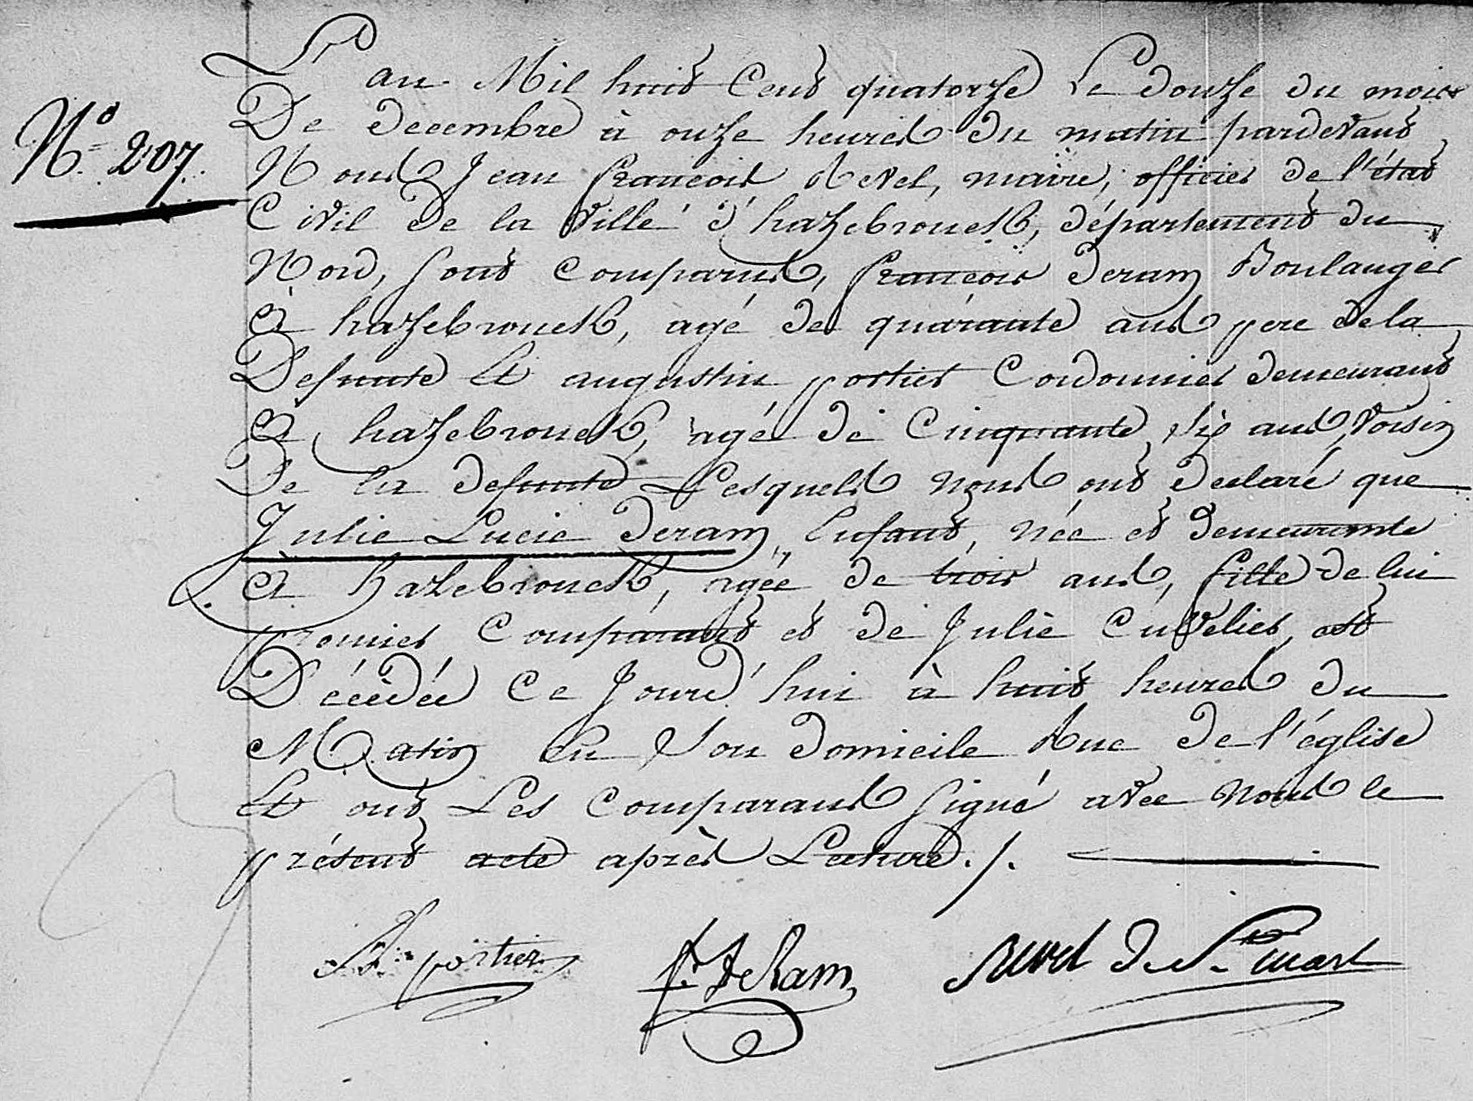 L'an Mil huit Cent quatorze Le douze du mois
De decembre à onze heures du matin pardevant
N° 207.
Nous Jean François Revel, maire, officier de l'état
Civil De la Ville d'hazebrouck, département du
Nord, sont comparus, françois deram Boulanger
à hazebrouck, agé de quarante ans pere de la
Defunte et augustin portier Cordonnier demeurant
à hazebrouck, agé de Cinquante six ans, Voisin
De la defunte Lesquels nous ont declaré que
Julie Lucie deram, Enfant, née et demeurante
à hazebrouck, agée de trois ans, fille de lui
premier Comparant et de Julie Cuvelier, est
Décédée Ce Jourd'hui à huit heures du
Matin En Son domicile Rue de l'église
Et ont Les comparans signé avec nous le
présent acte après Lecture ./.
portier
f. deRam
Revel de